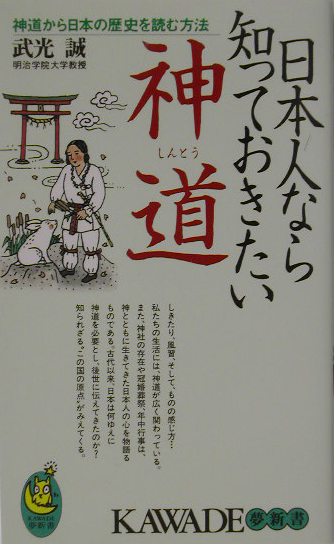 神道から日本の歴史を読む方法
武光 誠
明治学院大学教授
日本人なら
知っておきたい
神道
しんとう
しきたり、風習、そして、ものの感じ方…
私たちの生活には、神道が広く関わっている。
また、神社の存在や冠婚葬祭、年中行事は、
神とともに生きてきた日本人の心を物語る
ものである。古代以来、日本は何ゆえに
神道を必要とし、後世に伝えてきたのか？
知られざる“この国の原点”がみえてくる。
KAWADE
夢新書
KAWADE 夢新書